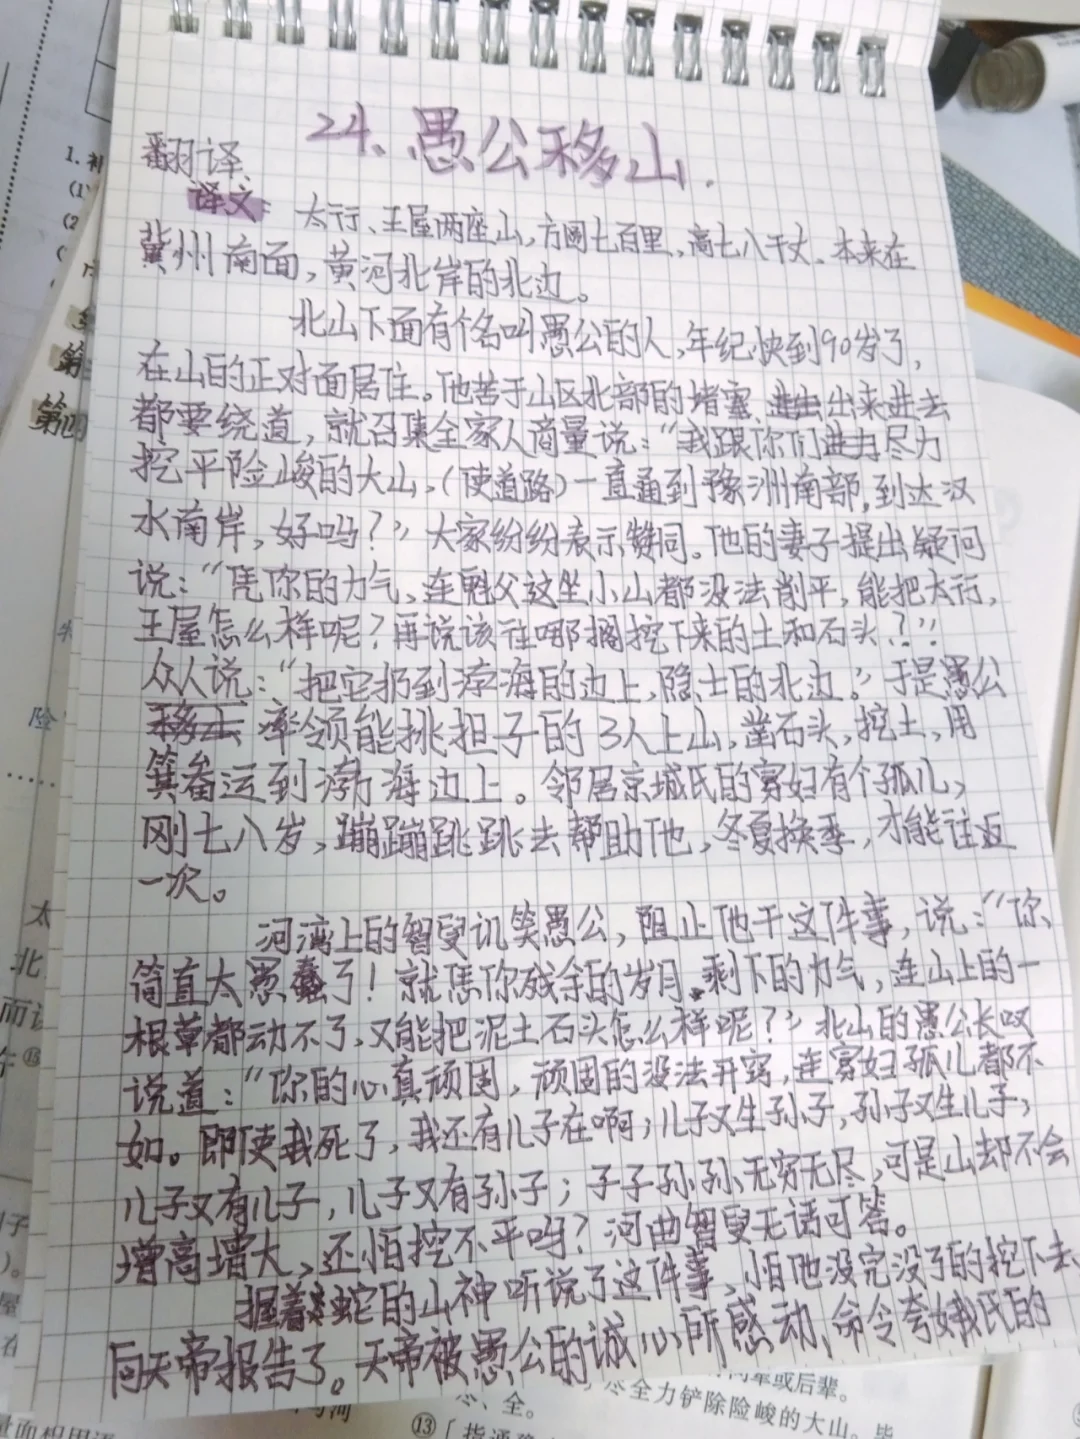 24、愚公移山.
翻译、
译文：太行、王屋两座山，方圆七百里，高七八千丈。本来在
冀州南面，黄河北岸的北边。
北山下面有个名叫愚公的人，年纪快到90岁了，
在山的正对面居住。他苦于山区北部的堵塞，进出出来进去
都要绕道，就召集全家人商量说：“我跟你们进尽力
挖平险峻的大山，（使道路）一直通到豫洲南部，到达汉
水南岸，好吗？”大家纷纷表示赞同。他的妻子提出疑问
说：“凭你的力气，连魁父这坐小山都没法削平，能把太行，
王屋怎么样呢？再说该往哪搁挖下来的土和石头？”
众人说：“把它扔到渤海的边上，隐士的北边。”于是愚公
率领能挑担子的3人上山，凿石头，挖土，用
箕畚运到渤海边上。邻居京城氏的寡妇有个孤儿，
刚七八岁，蹦蹦跳跳去帮助他，冬夏换季，才能往返
一次。
河湾上的智叟讥笑愚公，阻止他干这件事，说：“你
简直太愚蠢了！就凭你残余的岁月、剩下的力气，连山上的一
根草都动不了，又能把泥土石头怎么样呢？”北山的愚公长叹
说道：“你的心真顽固，顽固的没法开窍，连寡妇孤儿都不
如。即使我死了，我还有儿子在啊；儿子又生孙子，孙子又生儿子；
儿子又有儿子，儿子又有孙子；子子孙孙无穷无尽，可是山却不会
增高增大，还怕挖不平吗？河曲智叟无话可答。
握着蛇的山神听说了这件事，怕他没完没了的挖下去，
向天帝报告了。天帝被愚公的诚心所感动，命令夸娥氏的
1.补
(1)
(2
第
第四
险
太
北
而
⑬
屋
同辈或后辈。
尽、全。
尽全力铲除险峻的大山。毕
⑬「指通豫